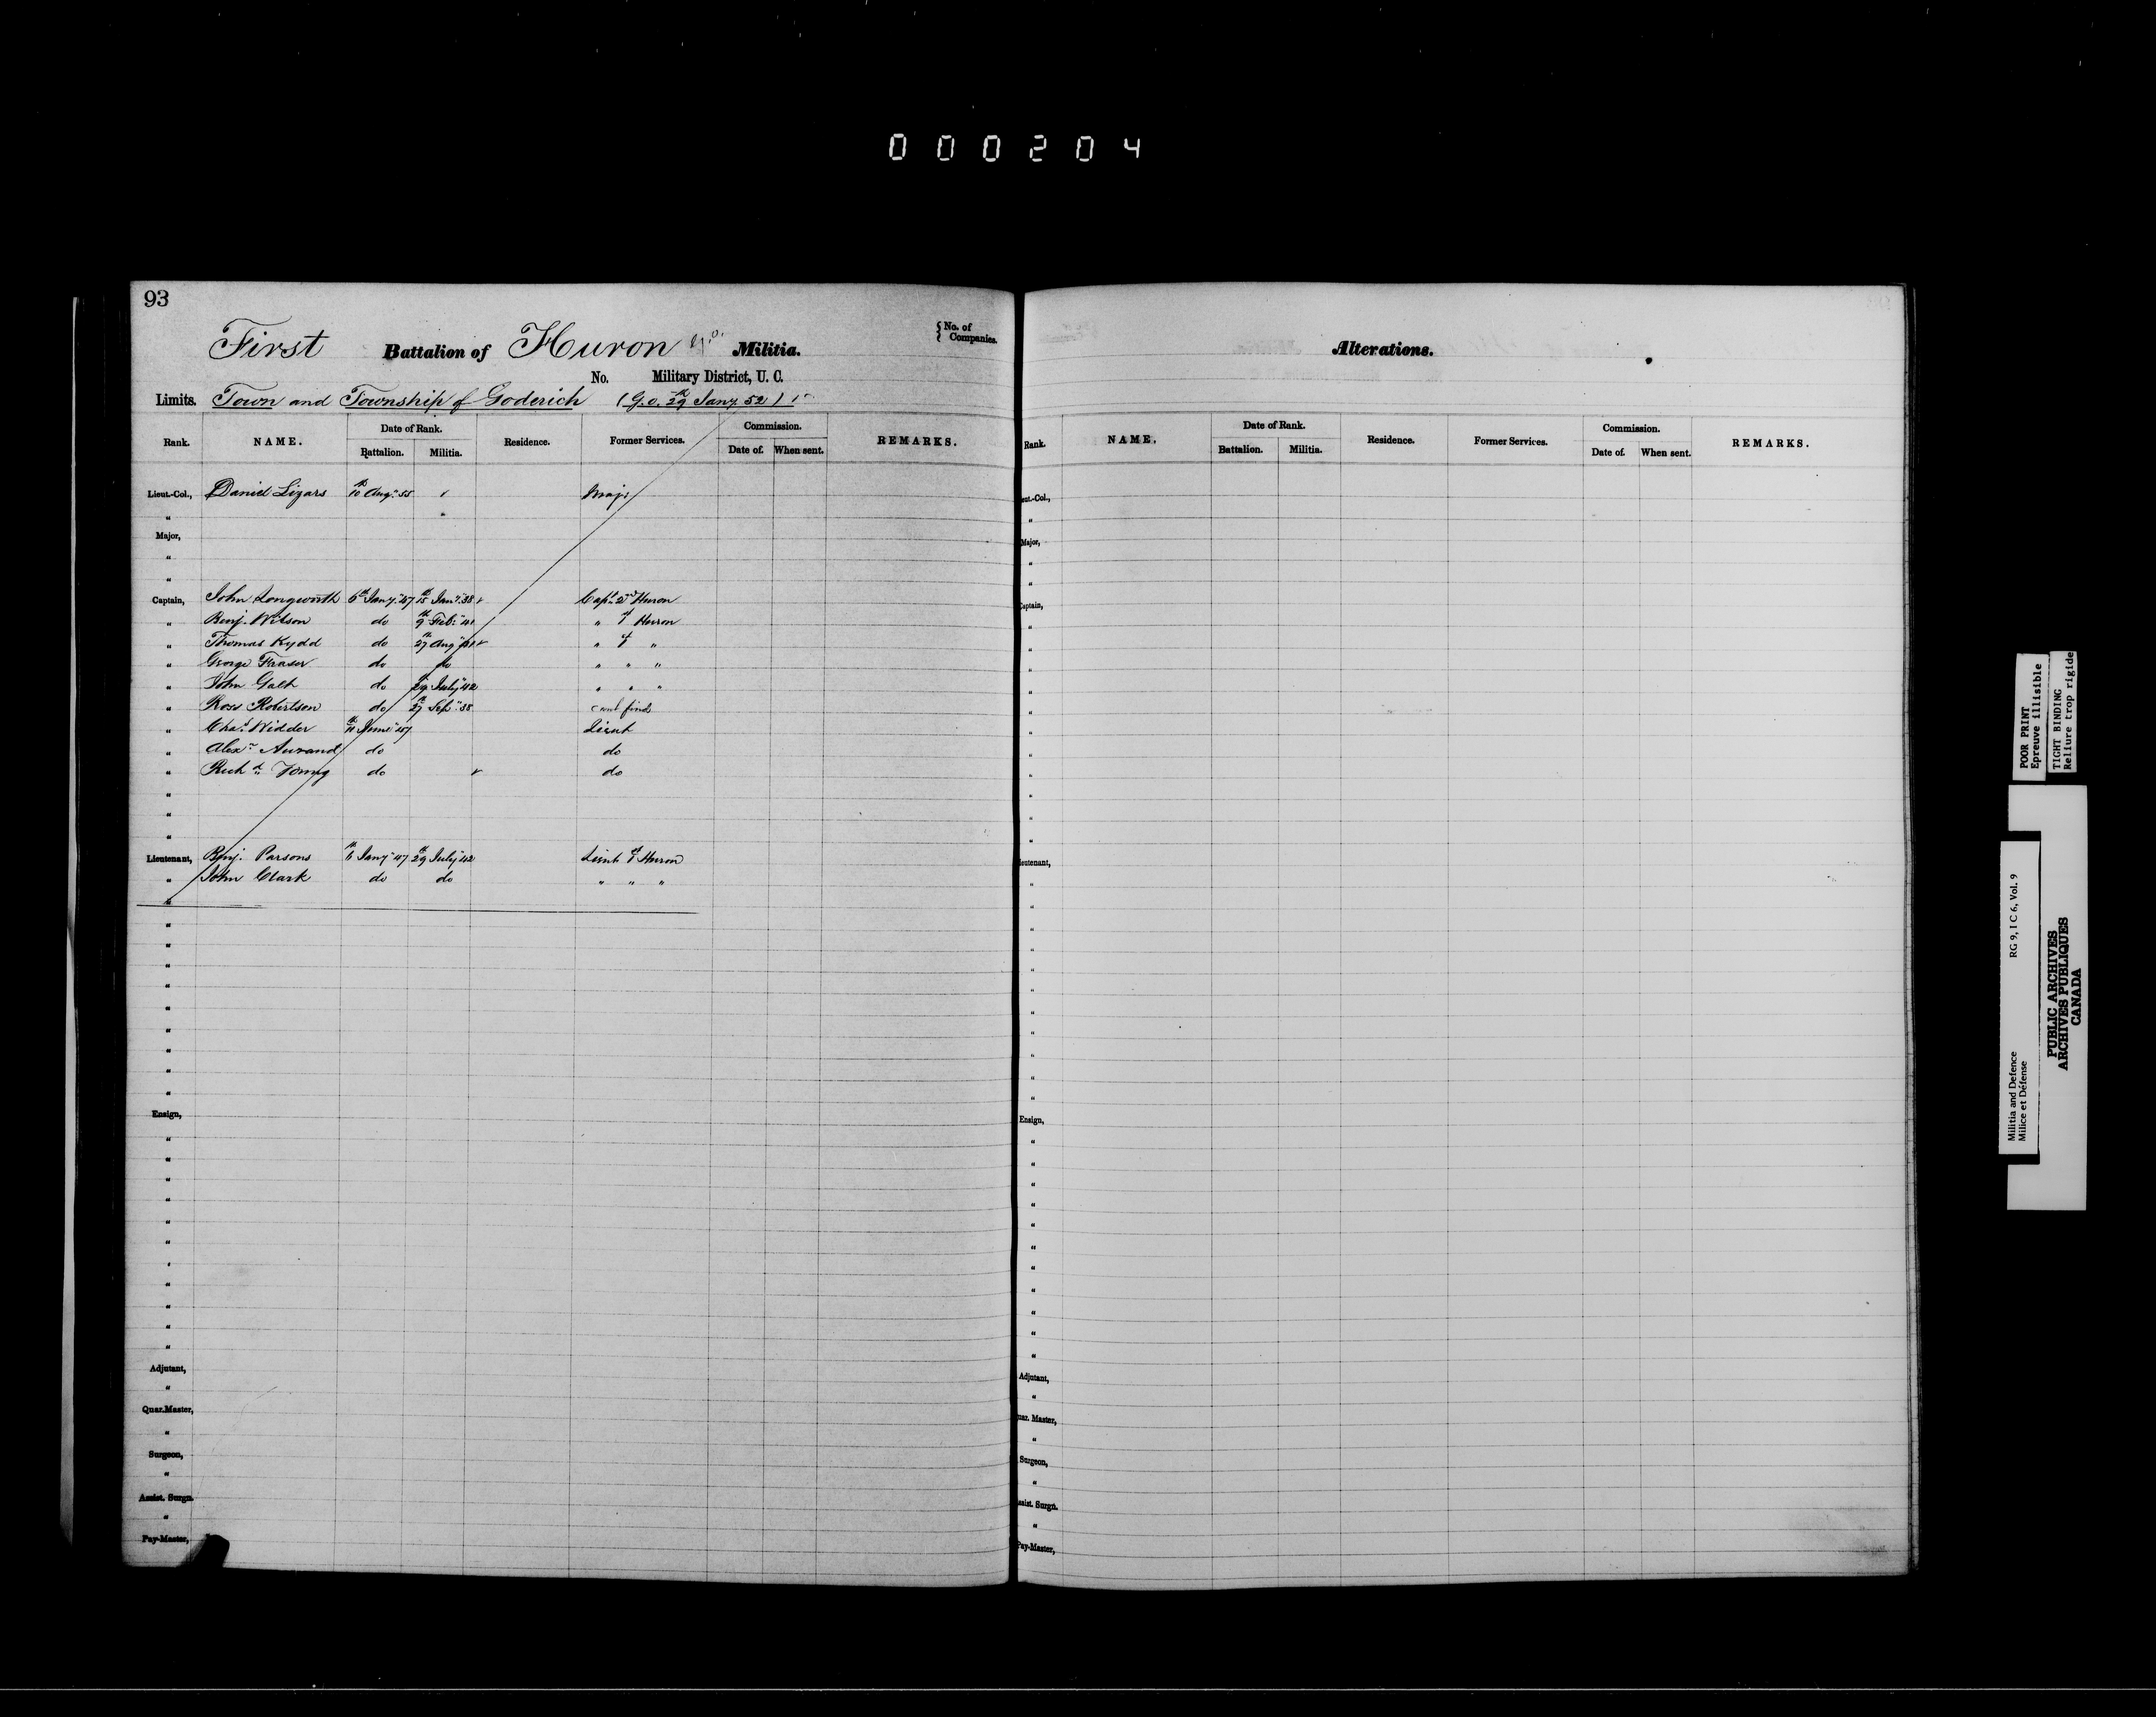 000204
93
First Battalion of Huron Militia.
{ No. of Companies.
No. Military District, U. C.
Limits. Town and Township of Goderich (G.O. 29th Jany. 52)
Rank. NAME. Date of Rank. Residence. Former Services. Commission. REMARKS.
Battalion. Militia. Date of. When sent.
Lieut.-Col., Daniel Lizars 10th Augt. 55 Major
"
Major,
"
"
Captain, John Longworth 6th Jany. 47 15th Jany. 38 Capt. 2nd Huron
" Benj. Wilson do 9th Feb. 41 " 1st Huron
" Thomas Kydd do 27th Aug 41 " 1st "
" George Fraser do do " " "
" John Galt do 29 July 42 " " "
" Ross Robertson do 27th Sep. 38 cant find
" Chas. Widder 11th June 47 Lieut
" Alexr. Aurand do do
" Richd. Young do do
"
"
"
Lieutenant, Benj. Parsons 6th Jany 47 29th July 42 Lieut 1st Huron
" John Clark do do " " "
"
"
"
"
"
"
"
"
"
"
Ensign,
"
"
"
"
"
"
"
"
"
"
"
Adjutant,
"
Quar.Master,
"
Surgeon,
"
Assist. Surgn.
"
Pay-Master,
Alterations.
Rank. NAME. Date of Rank. Residence. Former Services. Commission. REMARKS.
Battalion. Militia. Date of. When sent.
eut.-Col.,
"
Major,
"
"
aptain,
"
"
"
"
"
"
"
"
"
"
"
ieutenant,
"
"
"
"
"
"
"
"
"
"
"
Ensign,
"
"
"
"
"
"
"
"
"
"
"
Adjutant,
"
uar. Master,
"
Surgeon,
"
ssist. Surgn.
"
Pay-Master,
POOR PRINT
Epreuve illisible
TIGHT BINDING
Reliure trop rigide
Militia and Defence
Milice et Défense
RG 9, I C 6, Vol. 9
PUBLIC ARCHIVES
ARCHIVES PUBLIQUES
CANADA